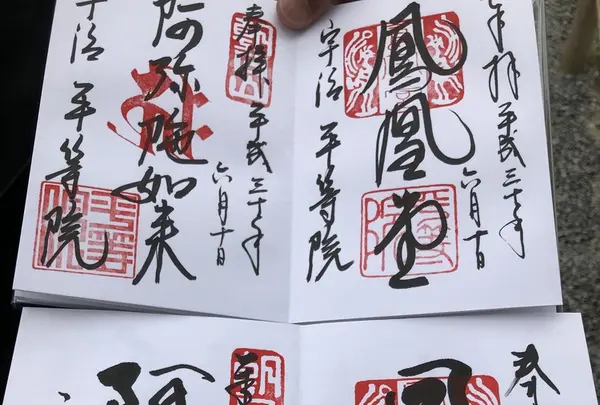 奉拝 平成三十年
六月十日
鳳凰堂
宇治 平等院
奉拝 平成三十年
六月十日
阿弥陀如来
宇治 平等院
奉